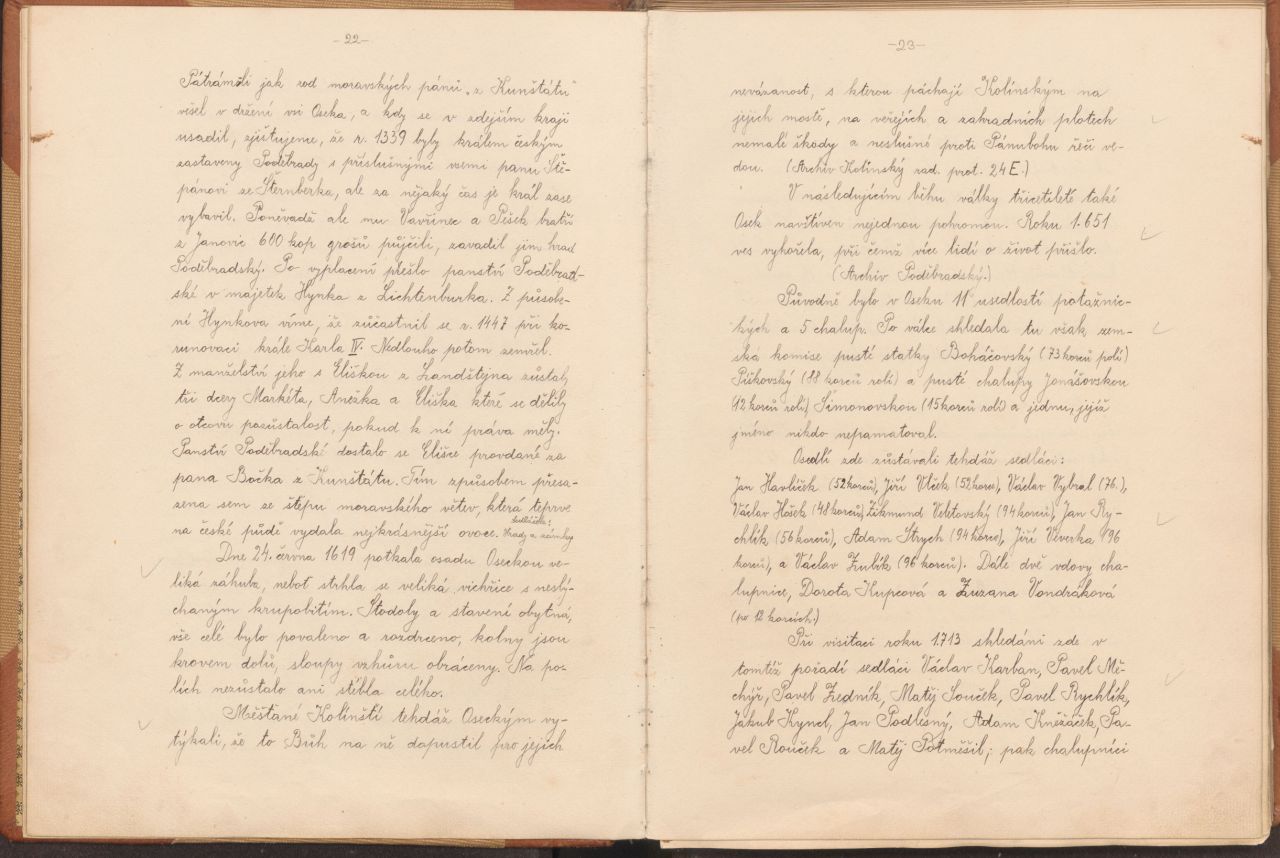 -22-
Pátráme-li jak rod moravských pánů "z Kunštátu"
vešel v držení vsi Oseka, a kdy se v zdejším kraji
usadil, zjišťujeme, že r. 1339 byly králem českým
zastaveny Poděbrady s příslušnými vsemi panu Ště-
pánovi ze Šternberka, ale za nějaký čas je král zase
vybavil. Poněvadž ale mu Vavřinec a Pešek bratři
z Janovic 600 kop grošů půjčili, zavadil jim hrad
Poděbradský. Po vyplacení přešlo panství Poděbrad-
ské v majetek Hynka z Lichtenburka. Z působe-
ní Hynkova víme, že zúčastnil se r. 1447 při ko-
runovaci krále Karla IV. Nedlouho potom zemřel.
Z manželství jeho s Eliškou z Landštýna zůstaly
tři dcery Markéta, Anežka a Eliška které se dělily
o otcovu pozůstalost, pokud k ní práva měly.
Panství Poděbradské dostalo se Elišce provdané za
pana Bočka z Kunštátu. Tím způsobem přesa-
zena sem ze štěpu moravského větev, která teprve
na české půdě vydala nejkrásnější ovoce. Sedláček: Hrady a zámky
Dne 24. června 1619 potkala osadu Oseckou ve-
liká záhuba, neboť strhla se veliká vichřice s neslý-
chaným krupobitím. Stodoly a stavení obytná,
vše celé bylo povaleno a rozdrceno, kolny jsou
krovem dolů, sloupy vzhůru obráceny. Na po-
lích nezůstalo ani stébla celého.
Měšťané Kolínští tehdáž Oseckým vy-
týkali, že to Bůh na ně dopustil pro jejich
-23-
nevázanost, s kterou páchají Kolínským na
jejich mostě, na veřejích a zahradních plotech
nemalé škody a neslušné proti Pánubohu řeči ve-
dou. (Archiv Kolínský rad. prot. 24E.)
V následujícím běhu války třicetileté také
Osek navštíven nejednou pohromou. Roku 1.651
ves vyhořela, při čemž více lidí o život přišlo.
(Archiv Poděbradský.)
Původně bylo v Oseku 11 usedlostí potažnic-
kých a 5 chalup. Po válce shledala tu však zem-
ská komise pusté statky Boháčovský (73 korců polí)
Píšovský (88 korců rolí) a pusté chalupy Jonášovskou
12 korců rolí) Šimonovskou (15 korců rolí) a jednu, jejíž
jméno nikdo nepamatoval.
Osedlí zde zůstávali tehdáž sedláci:
Jan Havlíček (52 korců), Jiří Vlček (52 korce), Václav Vybral (76.),
Václav Hošek (48 korců), Zikmund Veletovský (94 korců), Jan Ry-
chlík (56 korců), Adam Štrych (94 korce), Jiří Veverka (96
korců), a Václav Zubík (96 korců). Dále dvě vdovy cha-
lupnice, Dorota Kupcová a Zuzana Vondráková
(po 12 korcích.)
Při visitaci roku 1.713 shledáni zde v
tomtéž pořadí sedláci Václav Karban, Pavel Mě-
chýř, Pavel Zedník, Matěj Souček, Pavel Rychlík,
Jakub Kyncl, Jan Podlesný, Adam Kněžáček, Pa-
vel Rouček a Matěj Potměšil; pak chalupníci